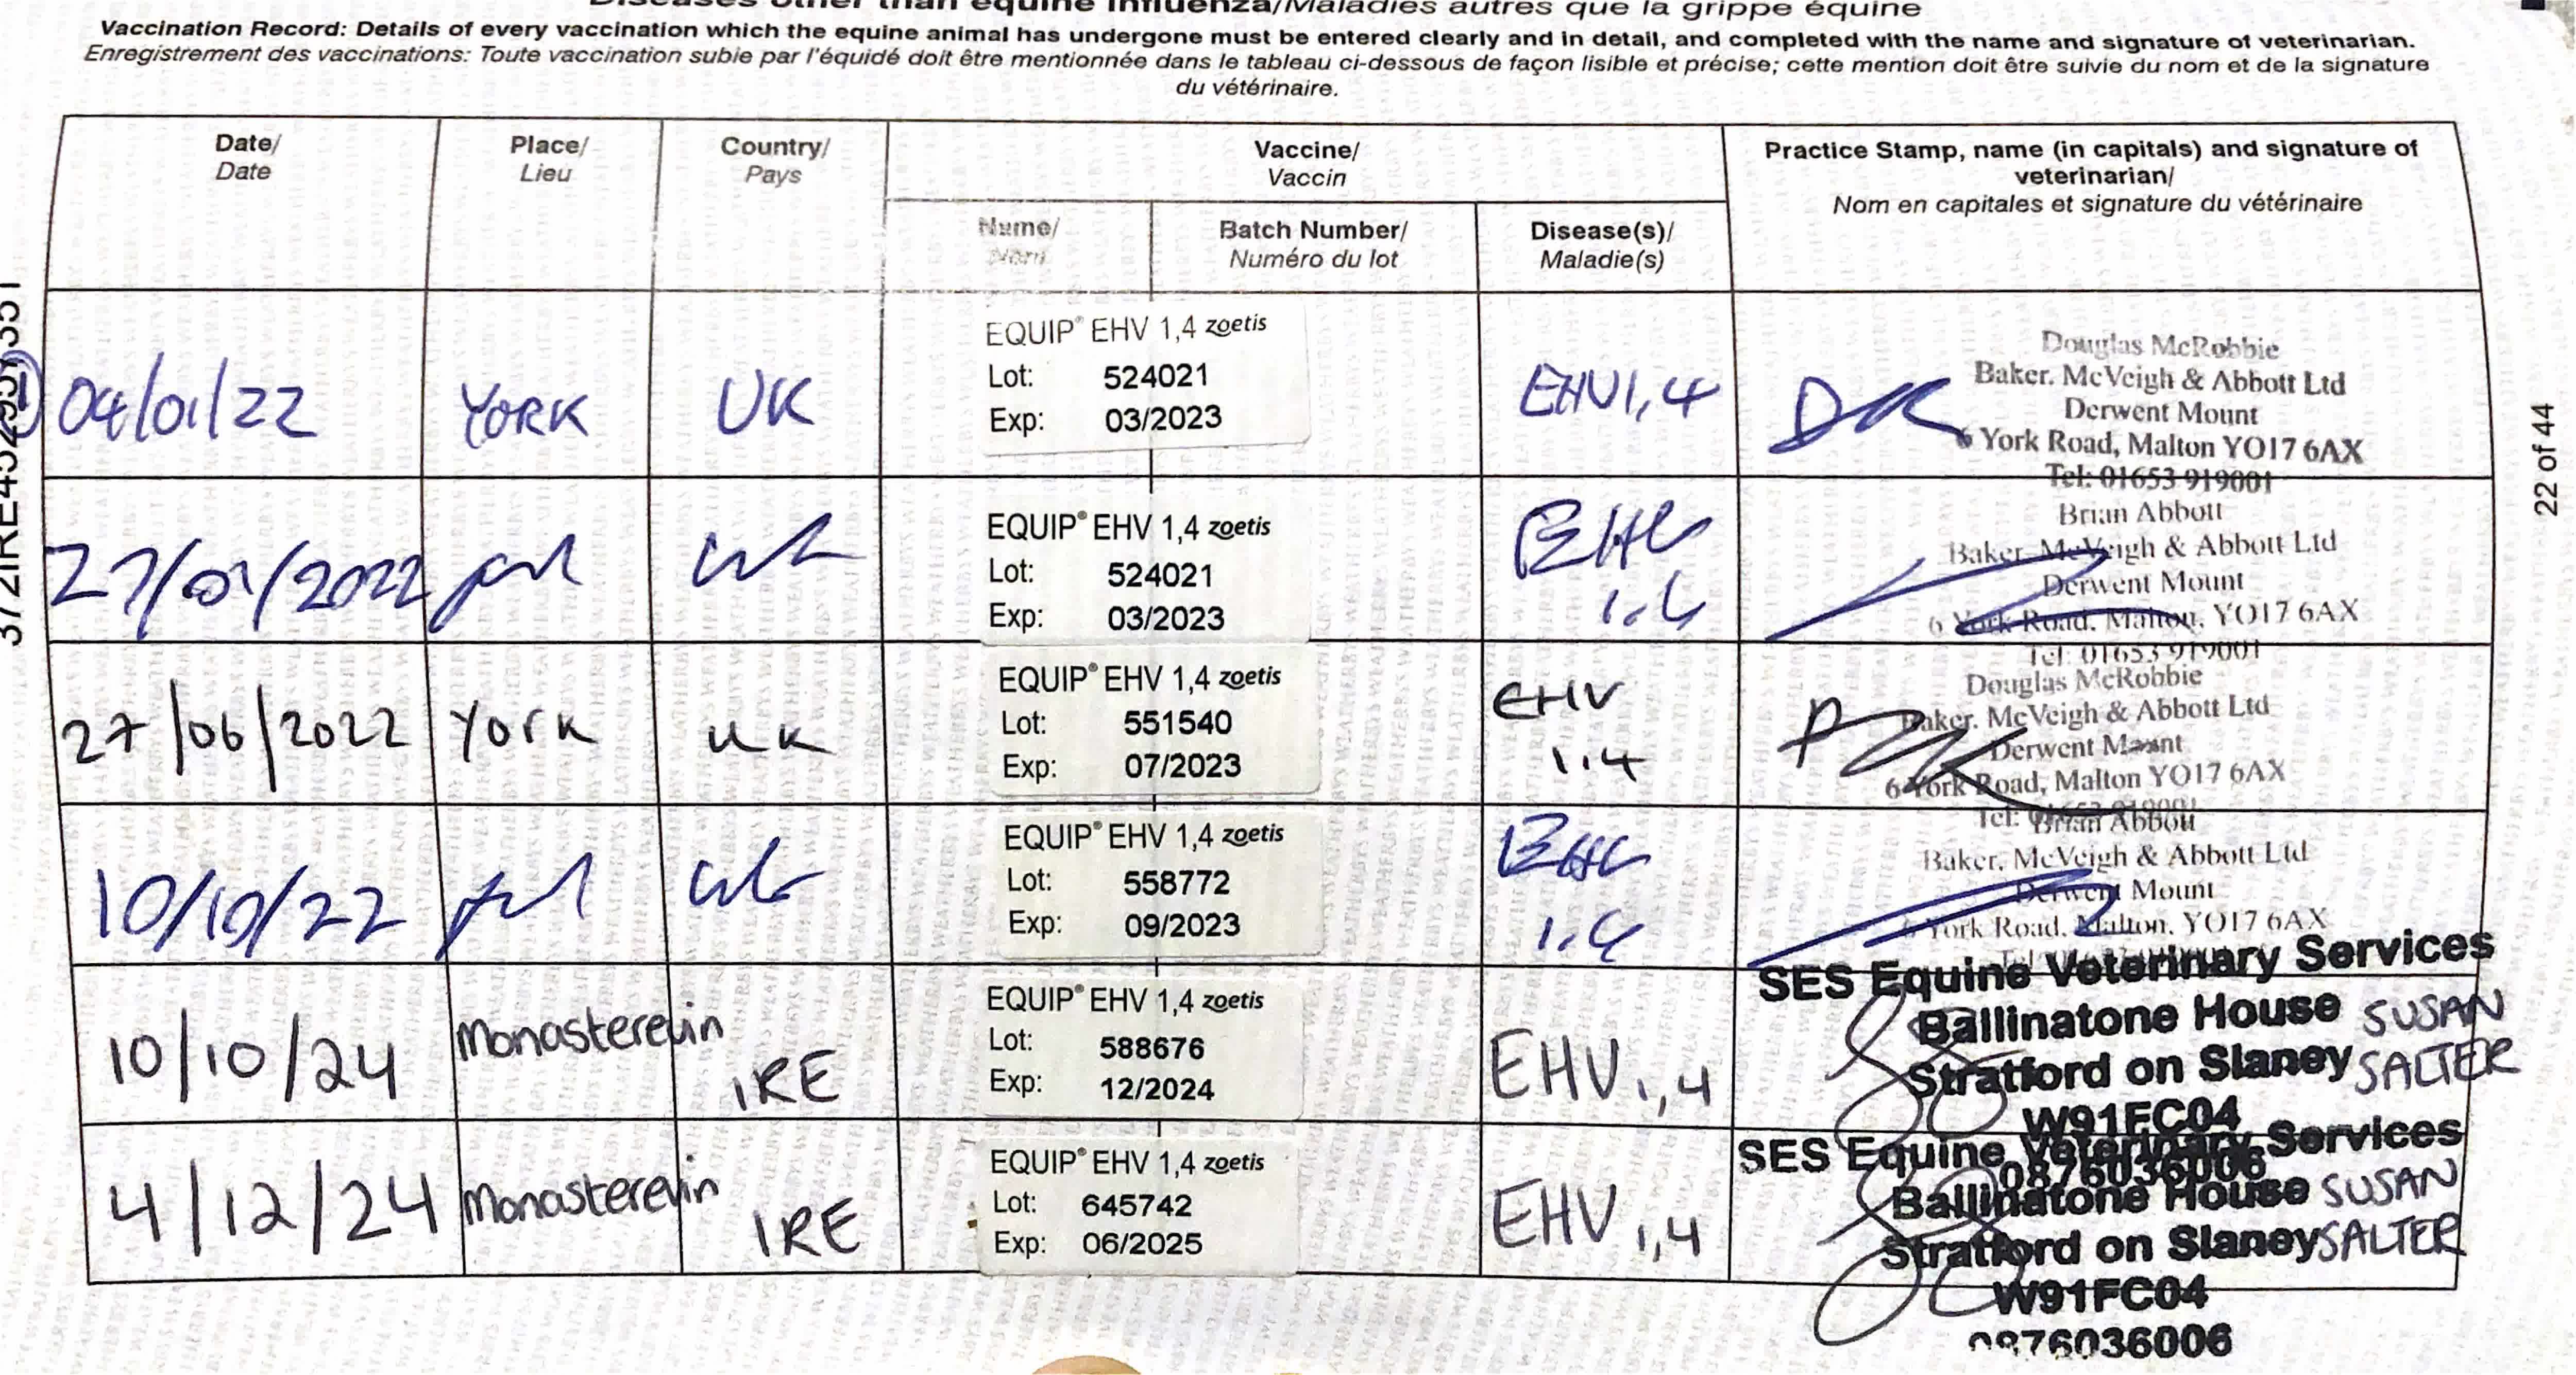 Diseases other than equine influenza/Maladies autres que la grippe équine
Vaccination Record: Details of every vaccination which the equine animal has undergone must be entered clearly and in detail, and completed with the name and signature of veterinarian.
Enregistrement des vaccinations: Toute vaccination subie par l'équidé doit être mentionnée dans le tableau ci-dessous de façon lisible et précise; cette mention doit être suivie du nom et de la signature
du vétérinaire.
Date/
Date
Place/
Lieu
Country/
Pays
Vaccine/
Vaccin
Name/
Nom
Batch Number/
Numéro du lot
Disease(s)/
Maladie(s)
Practice Stamp, name (in capitals) and signature of
veterinarian/
Nom en capitales et signature du vétérinaire
04/01/22
YORK
UK
EQUIP® EHV 1,4 zoetis
Lot: 524021
Exp: 03/2023
EHV1,4
Douglas McRobbie
Baker. McVeigh & Abbott Ltd
Derwent Mount
6 York Road, Malton YO17 6AX
Tel: 01653 919001
EQUIP® EHV 1,4 zoetis
Lot: 524021
Exp: 03/2023
Brian Abbott
Baker. McVeigh & Abbott Ltd
Derwent Mount
6 York Road. Malton, YO17 6AX
Tel: 01653 919001
27/06/2022
York
UK
EQUIP® EHV 1,4 zoetis
Lot: 551540
Exp: 07/2023
EHV
1.4
Douglas McRobbie
Baker. McVeigh & Abbott Ltd
Derwent Mount
6 York Road, Malton YO17 6AX
Tel:
10/10/22
EQUIP® EHV 1,4 zoetis
Lot: 558772
Exp: 09/2023
Brian Abbott
Baker, McVeigh & Abbott Ltd
Derwent Mount
York Road, Malton, YO17 6AX
10/10/24
Monasterevin
IRE
EQUIP® EHV 1,4 zoetis
Lot: 588676
Exp: 12/2024
EHV 1,4
SES Equine Veterinary Services
Ballinatone House
Stratford on Slaney
W91FC04
0876036006
SUSAN
SALTER
4/12/24
Monasterevin
IRE
EQUIP® EHV 1,4 zoetis
Lot: 645742
Exp: 06/2025
EHV 1,4
SES Equine Veterinary Services
Ballinatone House
Stratford on Slaney
W91FC04
0876036006
SUSAN
SALTER
22 of 44